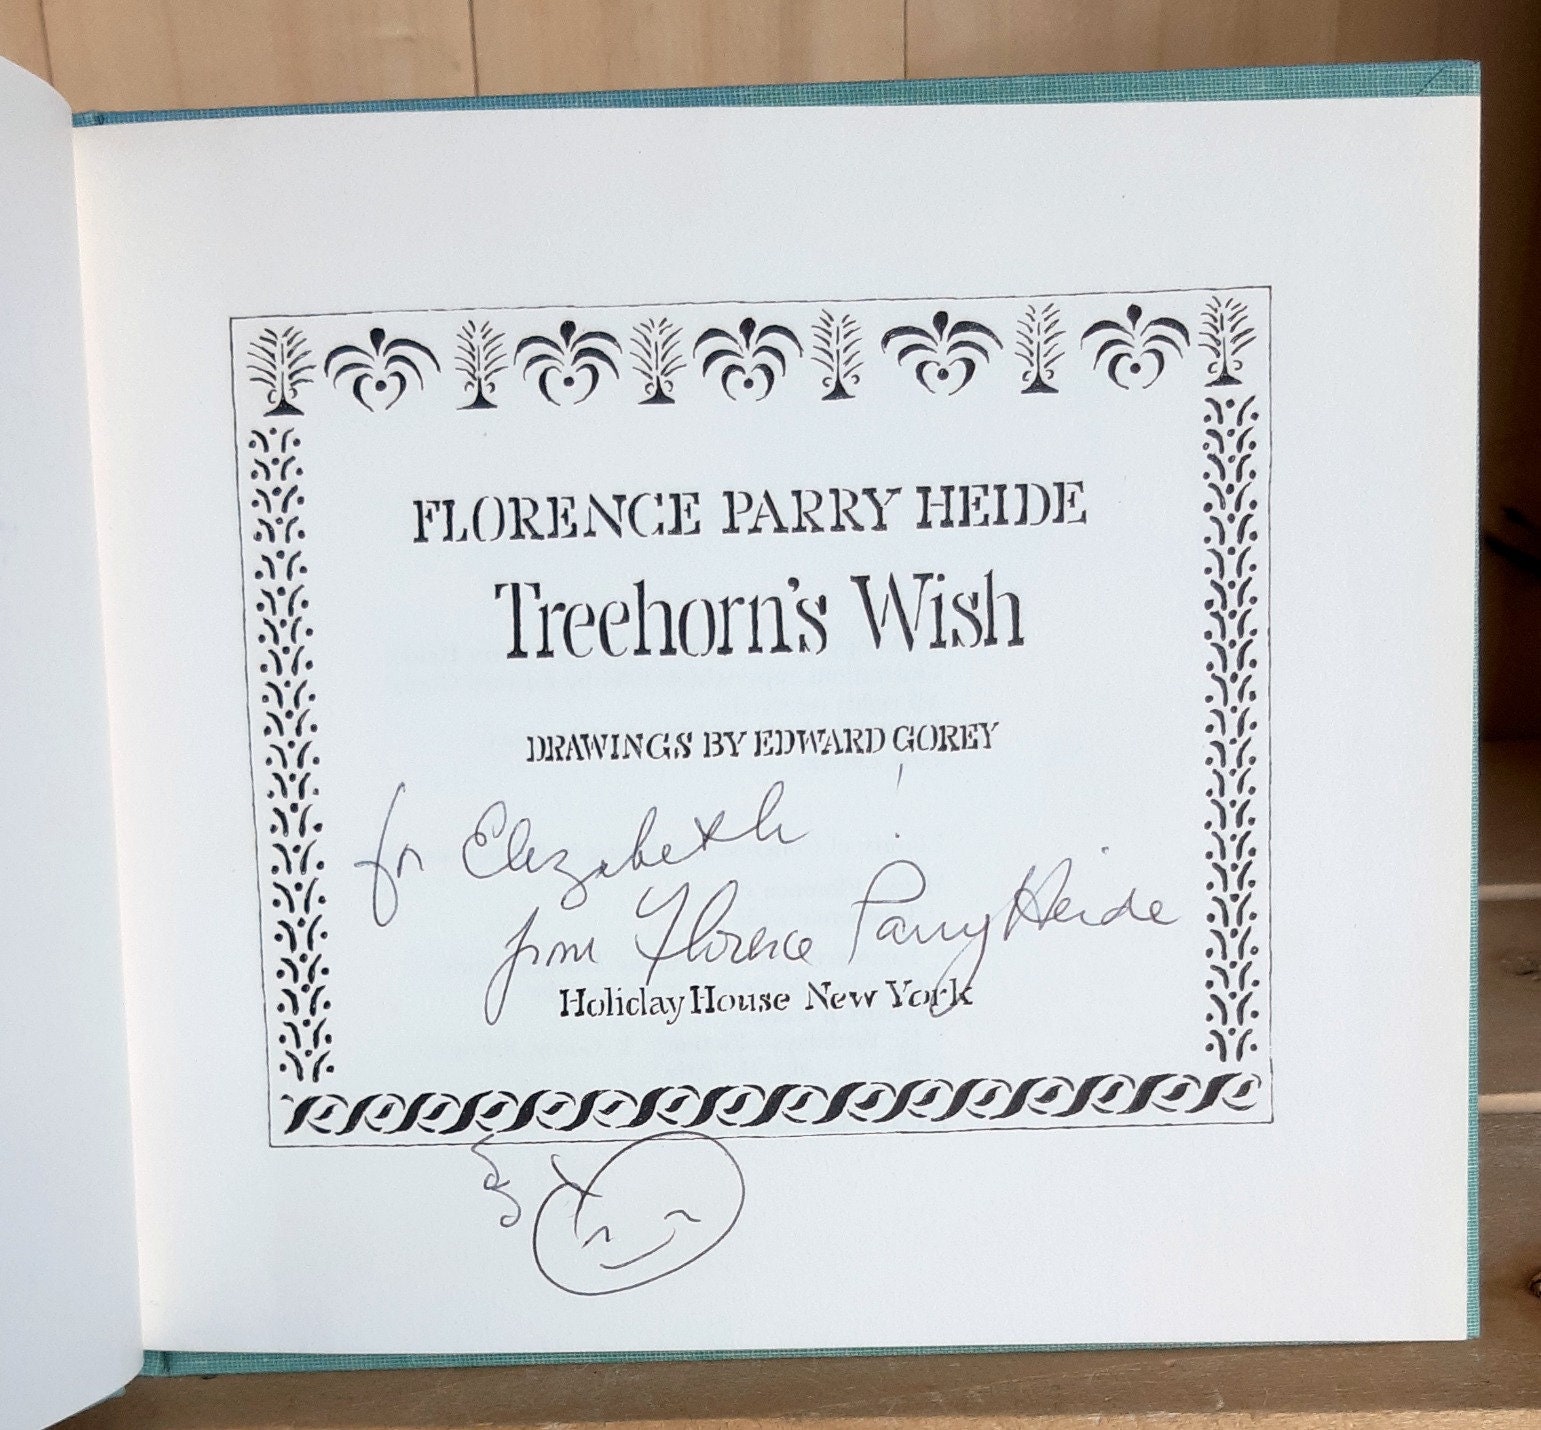 FLORENCE PARRY HEIDE
Treehorn's Wish
DRAWINGS BY EDWARD GOREY
for Elizabeth!
from Florence Parry Heide
Holiday House New York